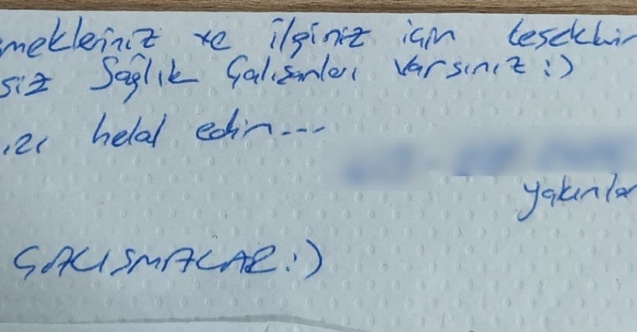 mekleriniz ve ilginiz için teşekkür
siz Sağlık Çalışanları varsınız :)
.zı helal edin...
yakınlar
ÇALIŞMALAR :)